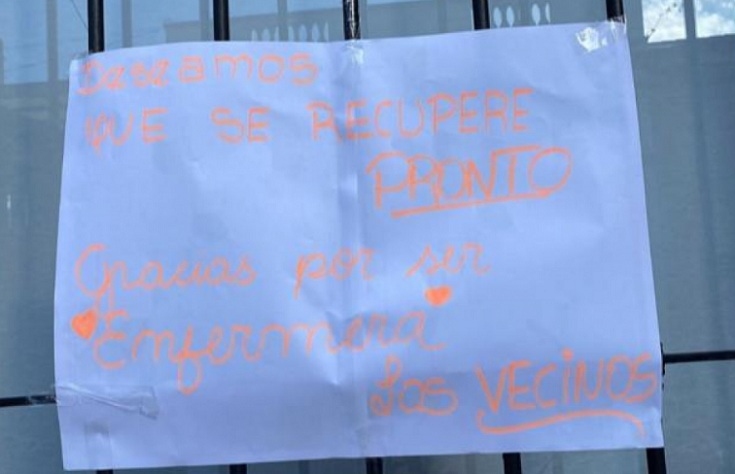 Deseamos
QUE SE RECUPERE
PRONTO
Gracias por ser
"Enfermera"
Los VECiNOS